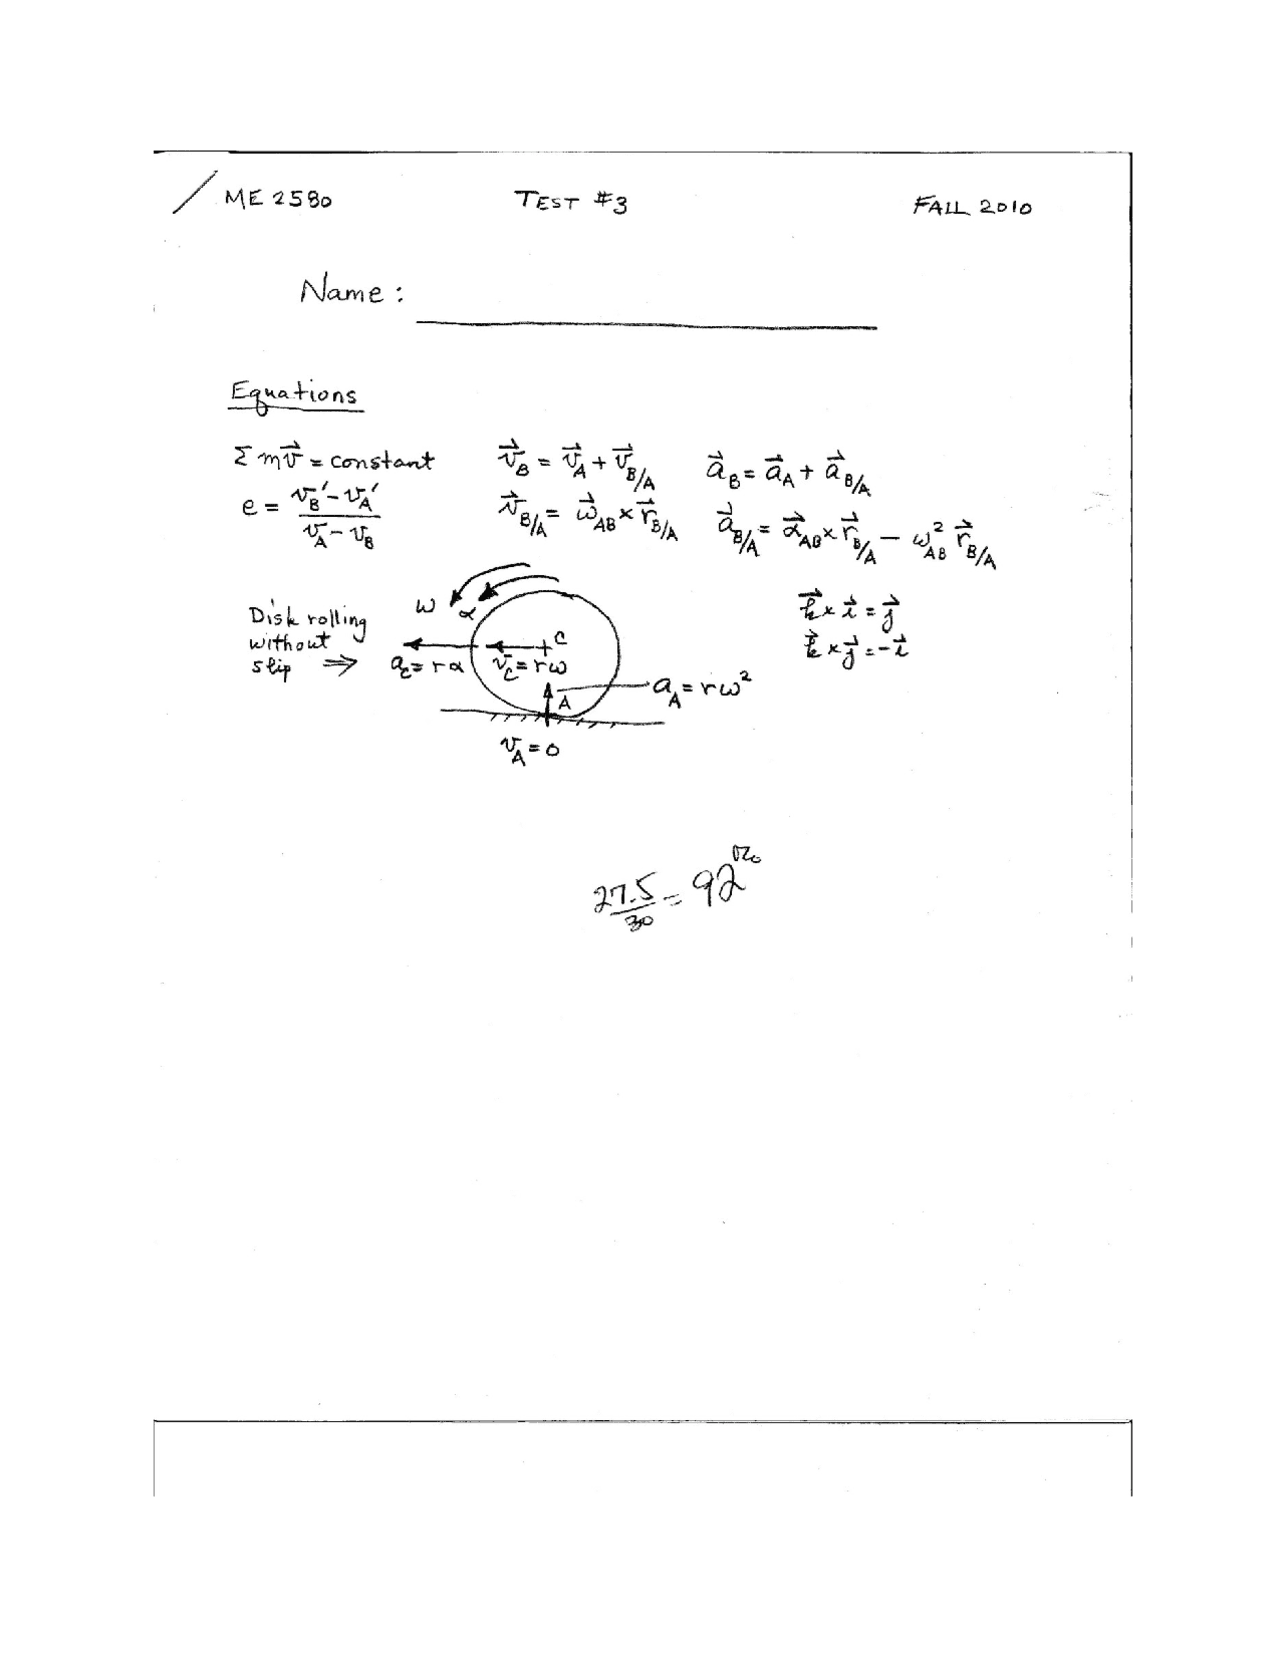 ME 2580 TEST #3 FALL 2010
Name:
Equations
Σmv⃗ = constant v⃗_B = v⃗_A + v⃗_B/A a⃗_B = a⃗_A + a⃗_B/A
e = (v_B' - v_A') / (v_A - v_B) v⃗_B/A = ω⃗_AB × r⃗_B/A a⃗_B/A = α⃗_AB × r⃗_B/A - ω²_AB r⃗_B/A
Disk rolling
without
slip ⇒
ω α
C
a_C = rα v_C = rω
A a_A = rω²
v_A = 0
k⃗ × i⃗ = j⃗
k⃗ × j⃗ = -i⃗
27.5/30 = 92